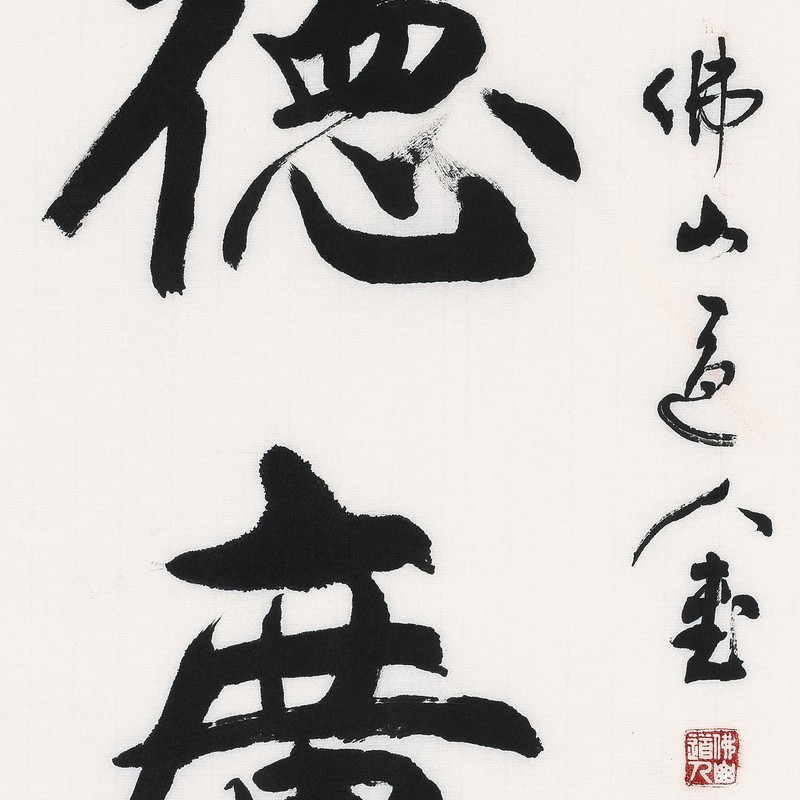 德廣
佛山道人書
佛山
道人